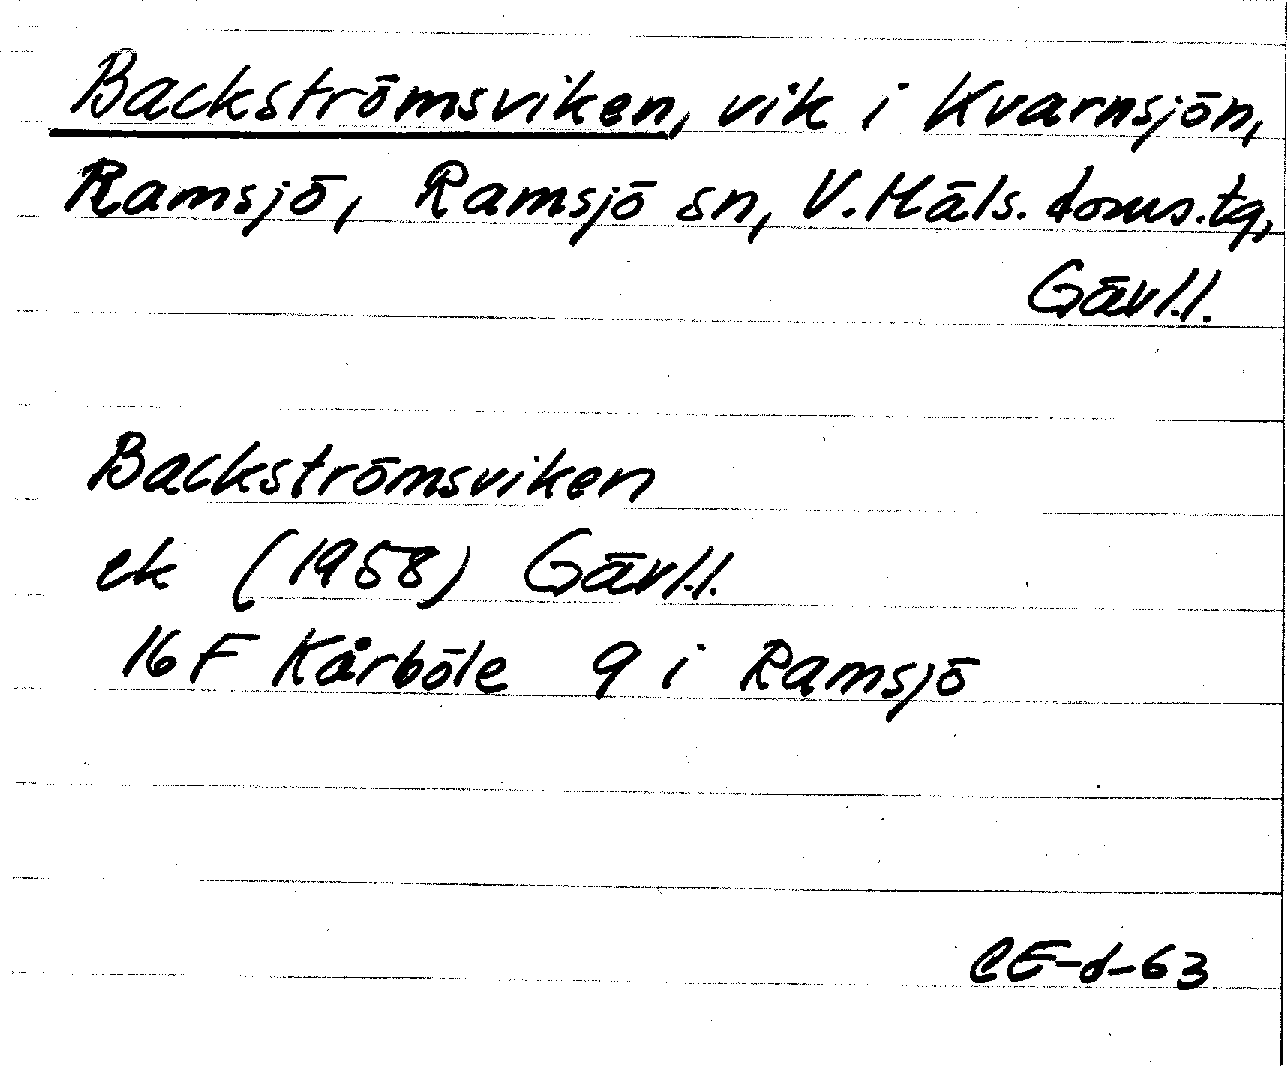 Backströmsviken, vik i Kvarnsjön,
Ramsjö, Ramsjö sn, V. Häls. doms.tg,
Gävl.l.
Backströmsviken
ek (1958) Gävl.l.
16 F Kårböle 9 i Ramsjö
CE-d-63